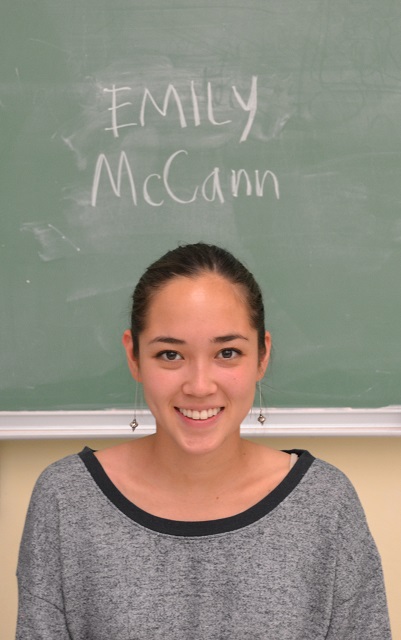 EMILY
McCann